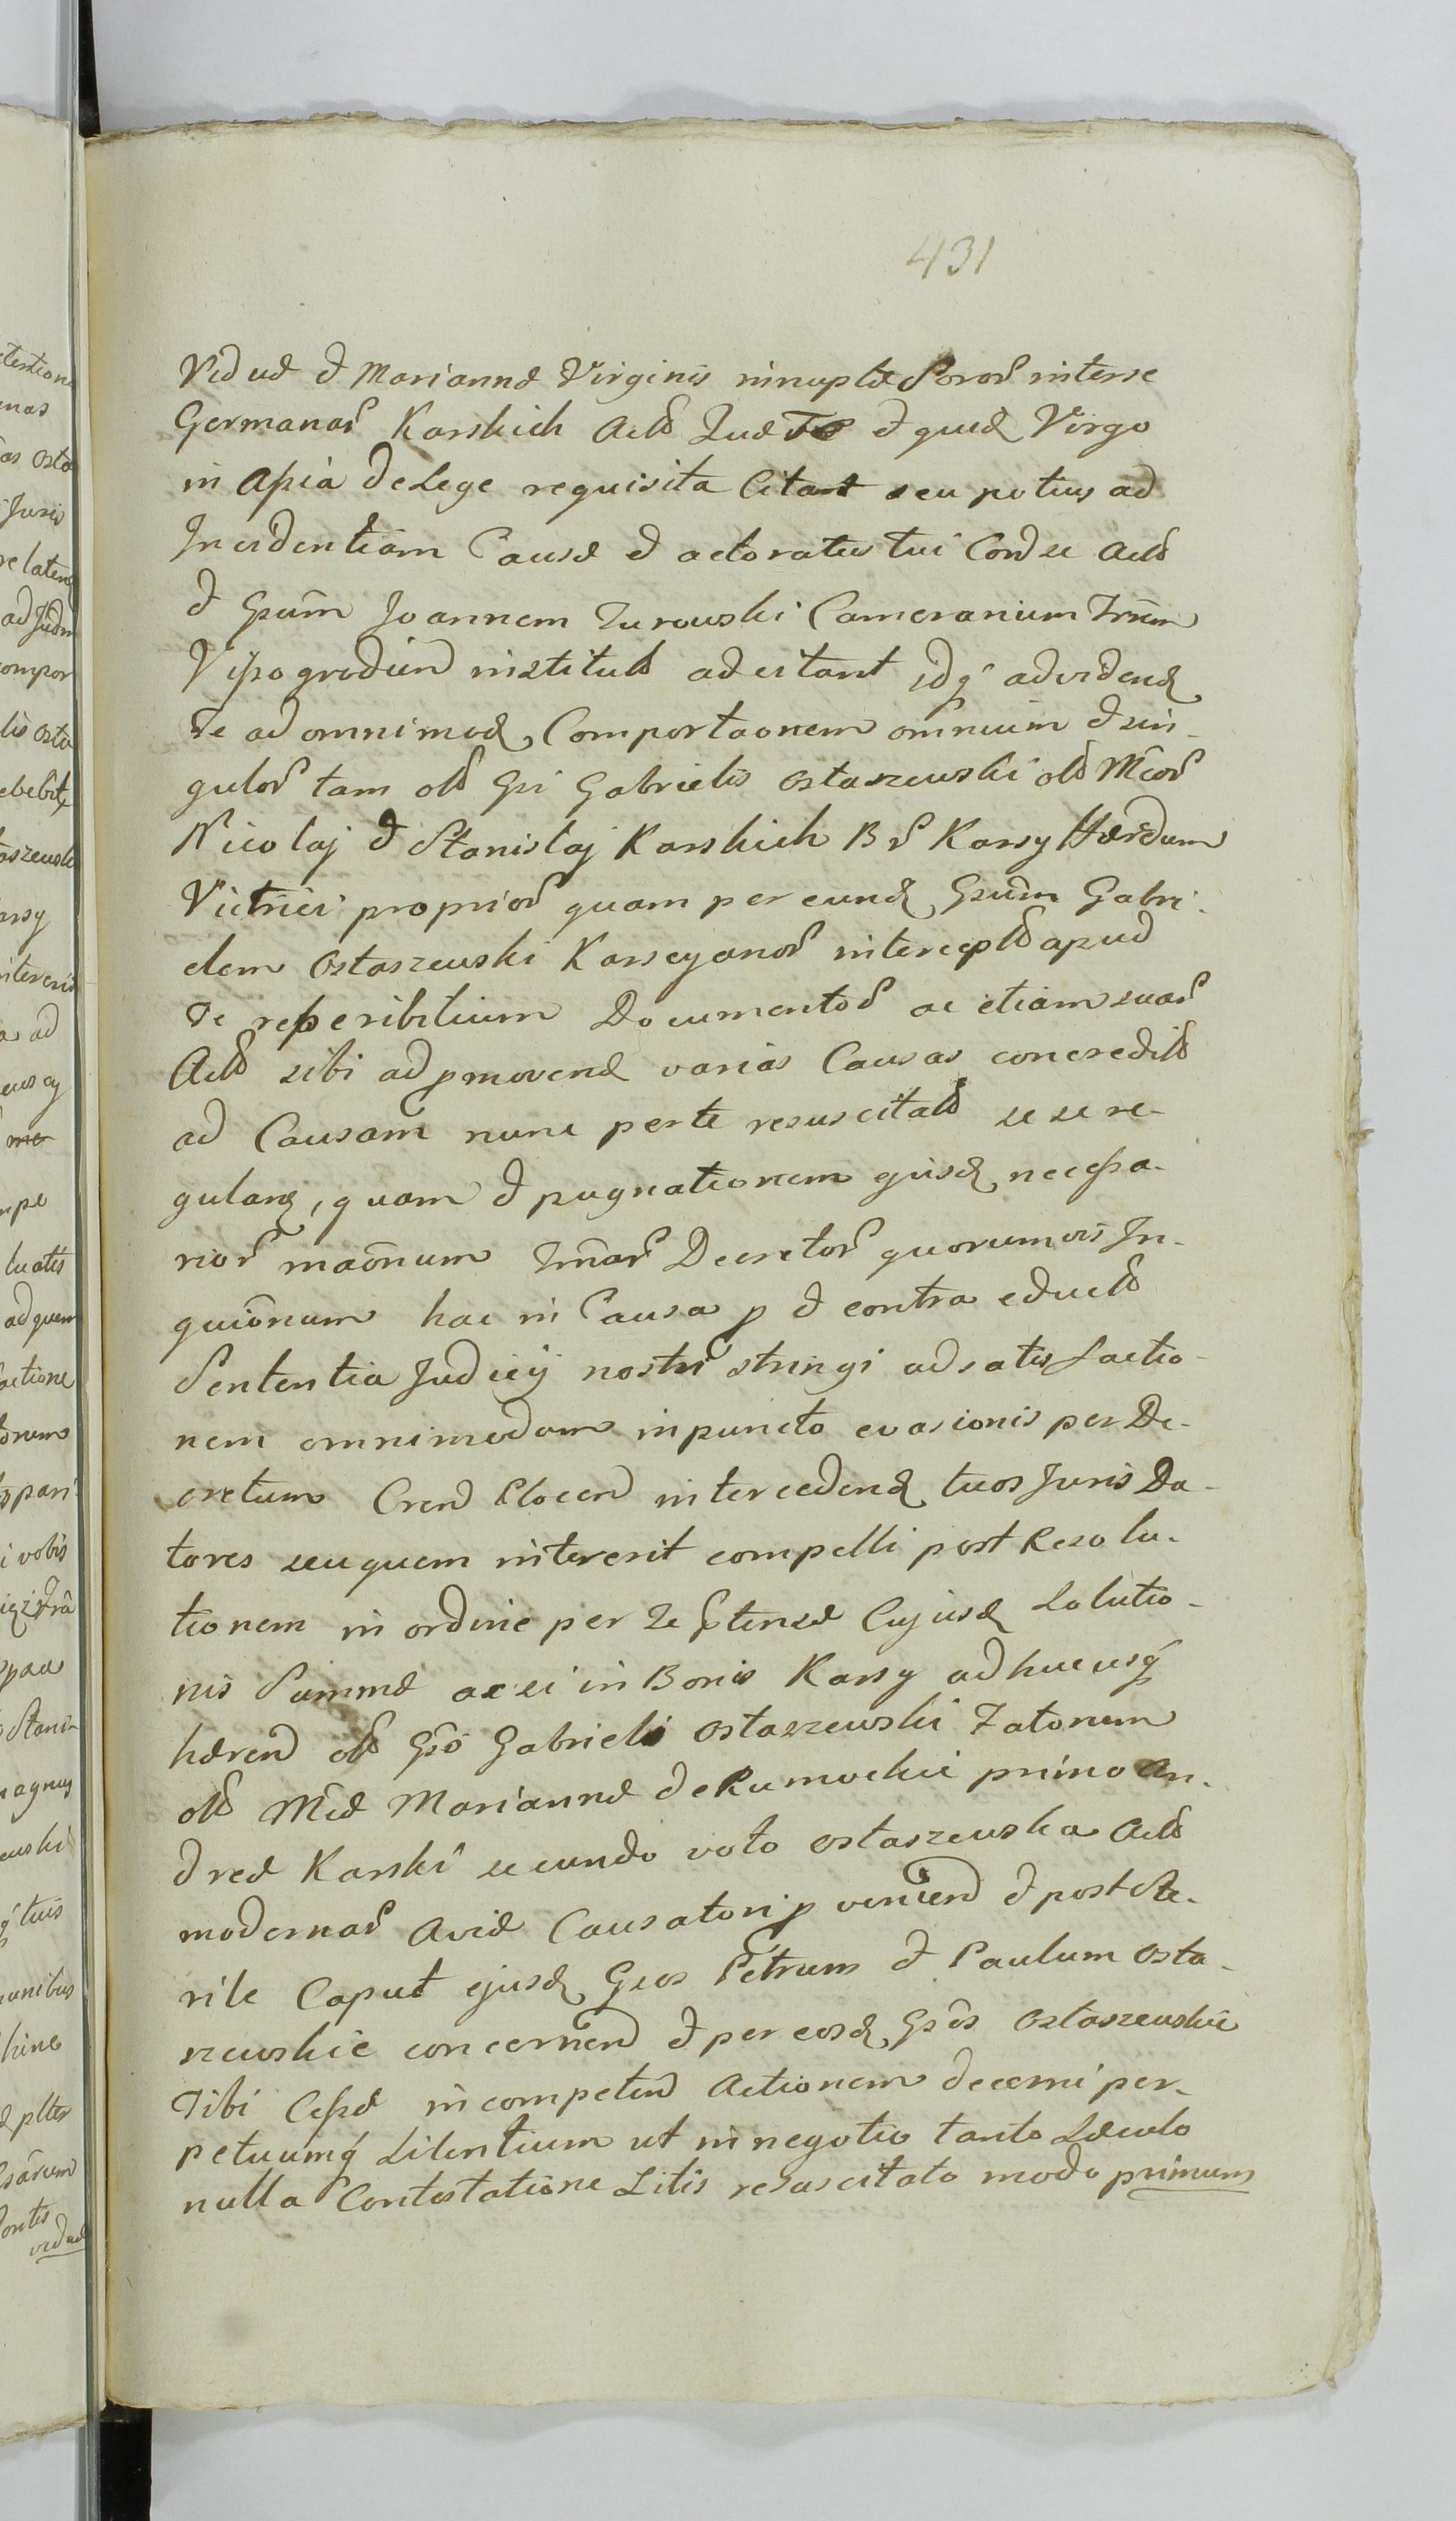 431
Viduæ & Mariannæ Virginis innuptæ Soror inter se
Germanar Karskich Act & quid Virgo
in Assia de Lege requisita Citant seu potius ad
Incidentiam Causæ & actoratus tui Condec Act
& Gsum Joannem Zurowski Camerarium Trrem
Vissogrodien institut adcitant idq advidend
Te ad omnimod Comportaonem omnium & sin-
gulor tam olt Gsi Gabrielis Ostaszewski olt Mcor
Nicolaj & Stanislaj Karskich B r Karsy Hærdum
Victrici proprior quam per eund Gsum Gabri-
elem Ostaszewski Karscyanor intercept apud
Te reperibilium Documentor ac etiam suar
Act sibi ad pmovend varias Causas concredit
ad Causam nunc per te resuscitat se se re-
guland, quam & pugnationem ejusd necessa-
rior maonum Trrnar Decretor quorumvis In-
quionum hac in Causa p & contra educt
Sententia Judicij nostri stringi ad satisfactio-
nem omnimodam in puncto evasionis per De-
cretum Crend Plocen intercedend tuos Juris Da-
tores seu quem intererit compelli post Resolu-
tionem in ordine per Te Cujusd Solutio-
nis Summæ ac si in Bonis Karsy adhucusq
hæren olt Gso Gabrieli Ostaszewski Zatorum
olt Mcæ Mariannæ de Rumockie primo An-
dreæ Karski secundo voto Ostaszewska Act
modernar Aviæ Causatori p venien & post ste-
rile Caput ejusd Gsos Petrum & Paulum Osta-
szewskie concernen & per eosd Gsos Ostaszewskie
Tibi Cessæ incompeten Actionem decerni per-
petuumq Silentium ut in negotio tanto Sæculo
nulla Contestatione Litis resuscitato modo primum